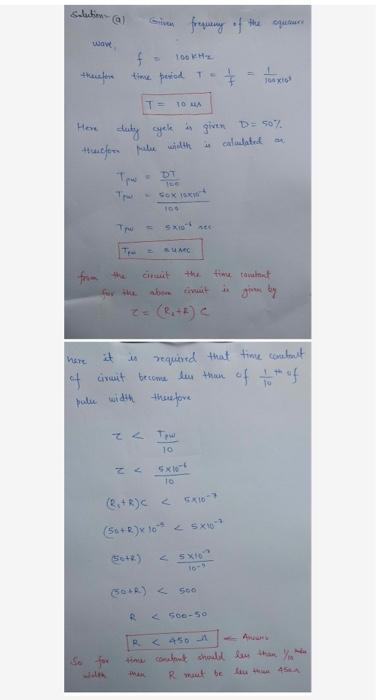 Solution:- (a) Given frequency of the square
wave,
f = 100 KHz
therefore time period T = 1/f = 1/100×10³
T = 10 us
Here duty cycle is given D = 50%
therefore pulse width is calculated as
Tpw = DT/100
Tpw = 50×10×10⁻⁶/100
Tpw = 5×10⁻⁶ sec
Tpw = 5 usec
from the circuit the time constant
for the above circuit is given by
τ = (Rs+R) C
here it is required that time constant
of circuit become less than of 1/10 th of
pulse width therefore
τ < Tpw/10
τ < 5×10⁻⁶/10
(Rs+R)C < 5×10⁻⁷
(50+R)×10⁻⁹ < 5×10⁻⁷
(50+R) < 5×10⁻⁷/10⁻⁹
(50+R) < 500
R < 500-50
R < 450 Ω ← Answer
So for time constant should less than 1/10 pulse
width then R must be less than 450Ω